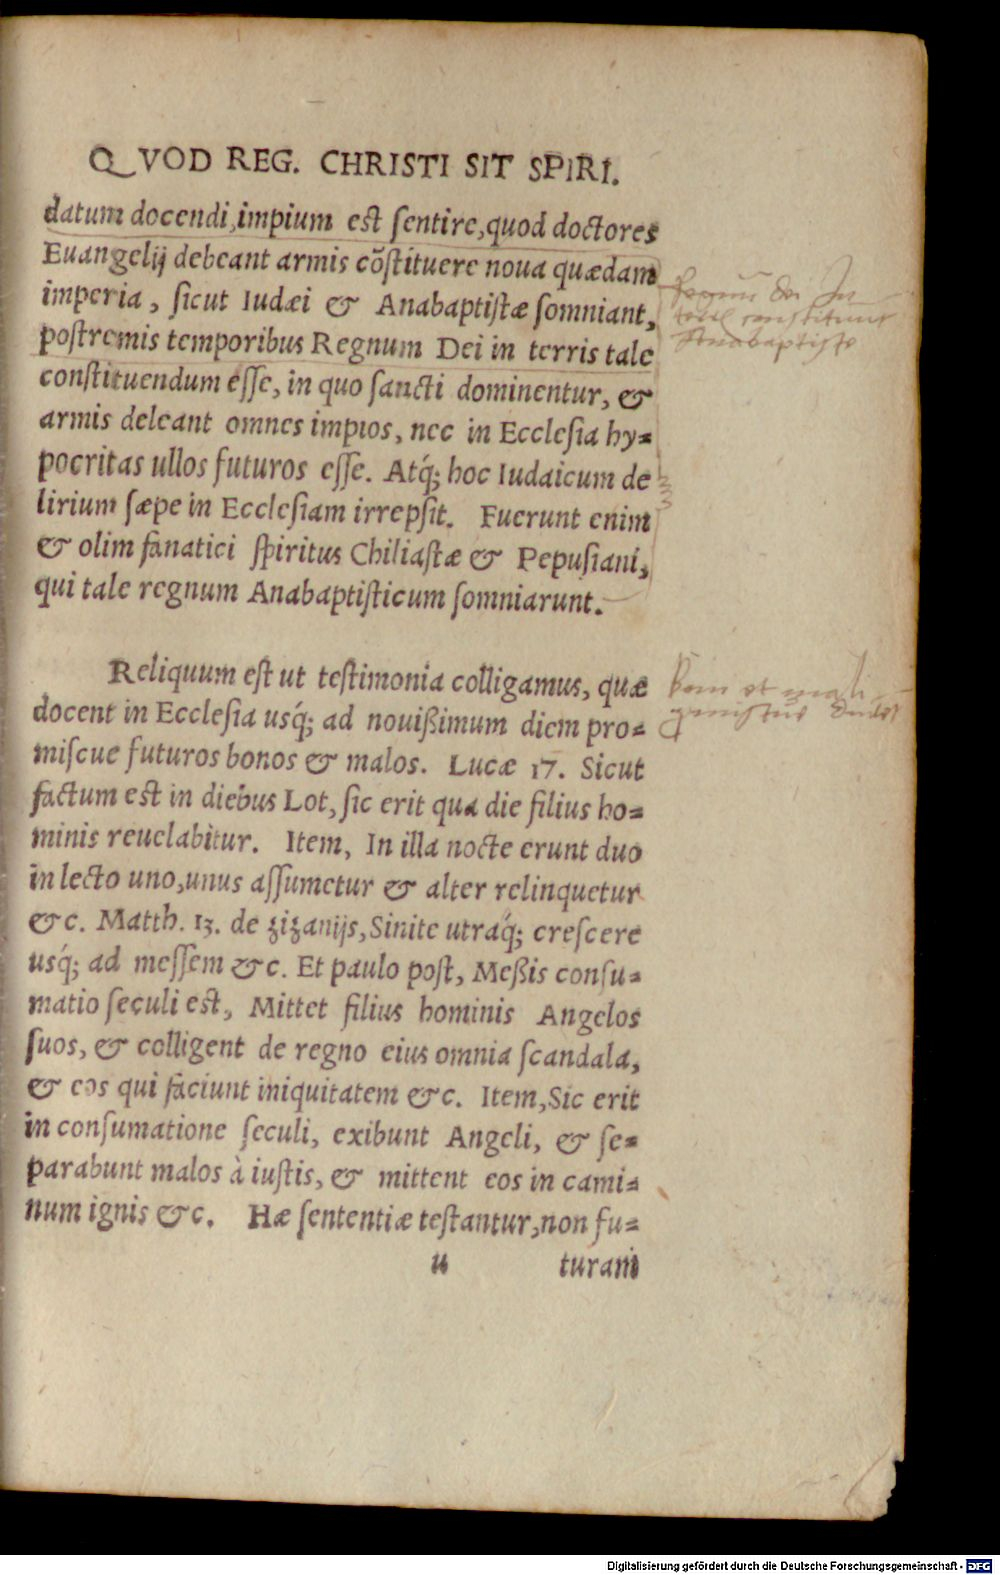 QVOD REG. CHRISTI SIT SPIRI.
datum docendi, impium est sentire, quod doctores
Euangelij debeant armis cõstituere noua quædam
imperia, sicut Iudæi & Anabaptistæ somniant,
postremis temporibus Regnum Dei in terris tale
constituendum esse, in quo sancti dominentur, &
armis deleant omnes impios, nec in Ecclesia hy=
pocritas ullos futuros esse. Atq́; hoc Iudaicum de
lirium sæpe in Ecclesiam irrepsit. Fuerunt enim
& olim fanatici spiritus Chiliastæ & Pepusiani,
qui tale regnum Anabaptisticum somniarunt.
Regnũ dei In
constituunt
Anabaptiste
Reliquum est ut testimonia colligamus, quæ
docent in Ecclesia usq́; ad nouißimum diem pro=
miscue futuros bonos & malos. Lucæ 17. Sicut
factum est in diebus Lot, sic erit qua die filius ho=
minis reuelabitur. Item, In illa nocte erunt duo
in lecto uno, unus assumetur & alter relinquetur
&c. Matth. 13. de zizanijs, Sinite utraq́; crescere
usq́; ad messem &c. Et paulo post, Meßis consu=
matio seculi est, Mittet filius hominis Angelos
suos, & colligent de regno eius omnia scandala,
& eos qui faciunt iniquitatem &c. Item, Sic erit
in consumatione seculi, exibunt Angeli, & se=
parabunt malos à iustis, & mittent eos in cami=
num ignis &c. Hæ sententiæ testantur, non fu=
u turam
Boni et mali
Digitalisierung gefördert durch die Deutsche Forschungsgemeinschaft - DFG